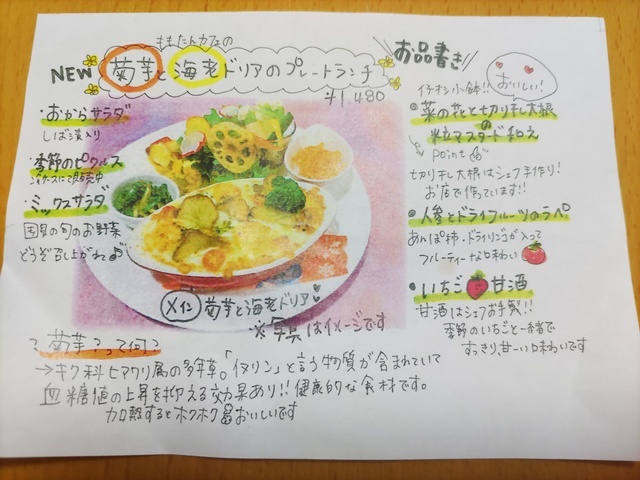 ももたんカフェの
NEW 菊芋と海老ドリアのプレートランチ
¥1,480
・おからサラダ
しば漬入り
・季節のピクルス
・ミックスサラダ
国見の旬のお野菜
どうぞ召し上がれ♪
メイン 菊芋と海老ドリア
※写真はイメージです
お品書き
おいしい!
イチオシ小鉢!!
●菜の花と切り干し大根
の
粒マスタード和え
Point
切り干し大根はシェフ手作り!
お店で作っています!!
●人参とドライフルーツのラペ
あんぽ柿・ドライリンゴが入って
フルーティーな味わい
●いちご甘酒
甘酒はシェフお手製!!
季節のいちごと一緒で
すっきり、甘〜い味わいです
?菊芋?って何?
→キク科ヒマワリ属の多年草。「イヌリン」と言う物質が含まれていて
血糖値の上昇を抑える効果あり!!健康的な食材です。
加熱するとホクホクおいしいです